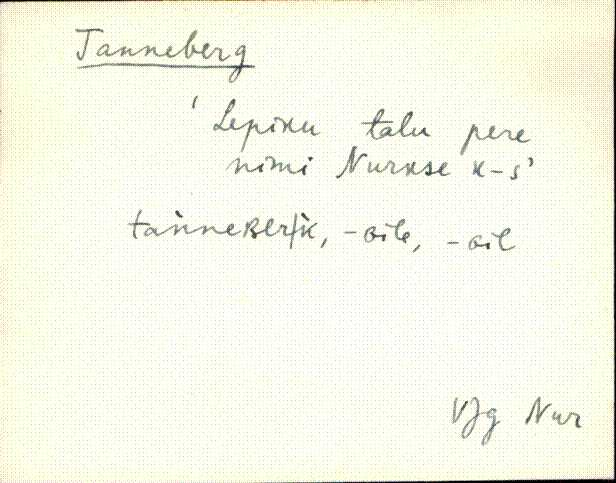 Tanneberg
'Lepiku talu pere
nimi Nurkse k-s'
tanneBerk, -oile, -oil
VJg Nur